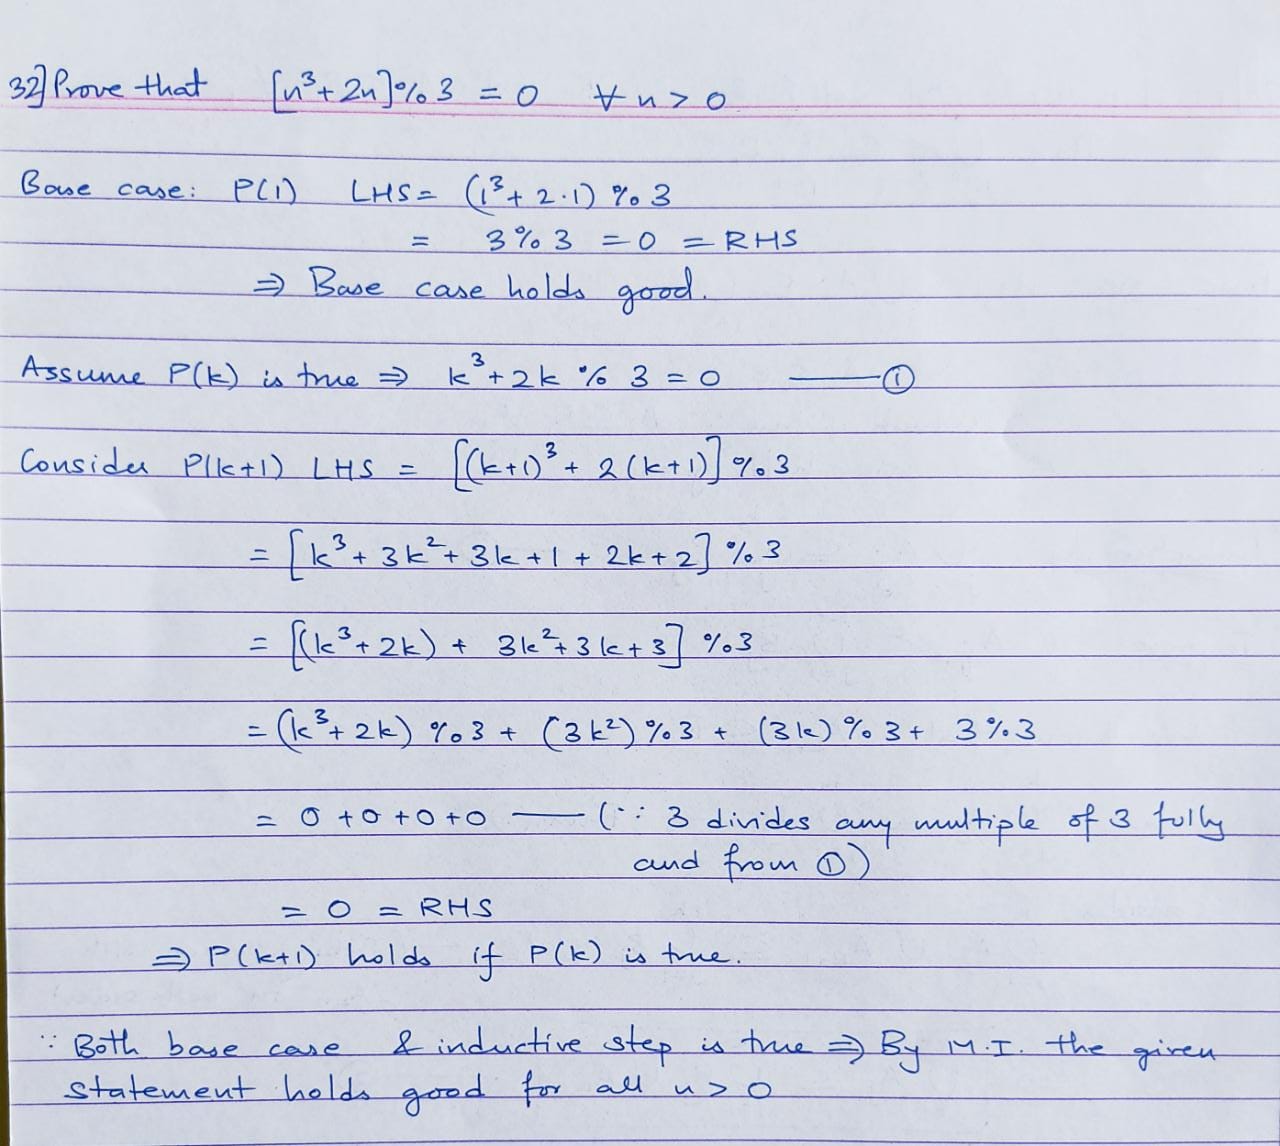 32] Prove that [n³ + 2n] % 3 = 0 ∀ n > 0
Base case: P(1) LHS = (1³ + 2·1) % 3
= 3 % 3 = 0 = RHS
⇒ Base case holds good.
Assume P(k) is true ⇒ k³ + 2k % 3 = 0 —— ①
Consider P(k+1) LHS = [(k+1)³ + 2(k+1)] % 3
= [k³ + 3k² + 3k + 1 + 2k + 2] % 3
= [(k³ + 2k) + 3k² + 3k + 3] % 3
= (k³ + 2k) % 3 + (3k²) % 3 + (3k) % 3 + 3 % 3
= 0 + 0 + 0 + 0 —— (∵ 3 divides any multiple of 3 fully
and from ①)
= 0 = RHS
⇒ P(k+1) holds if P(k) is true.
∵ Both base case & inductive step is true ⇒ By M.I. the given
statement holds good for all n > 0